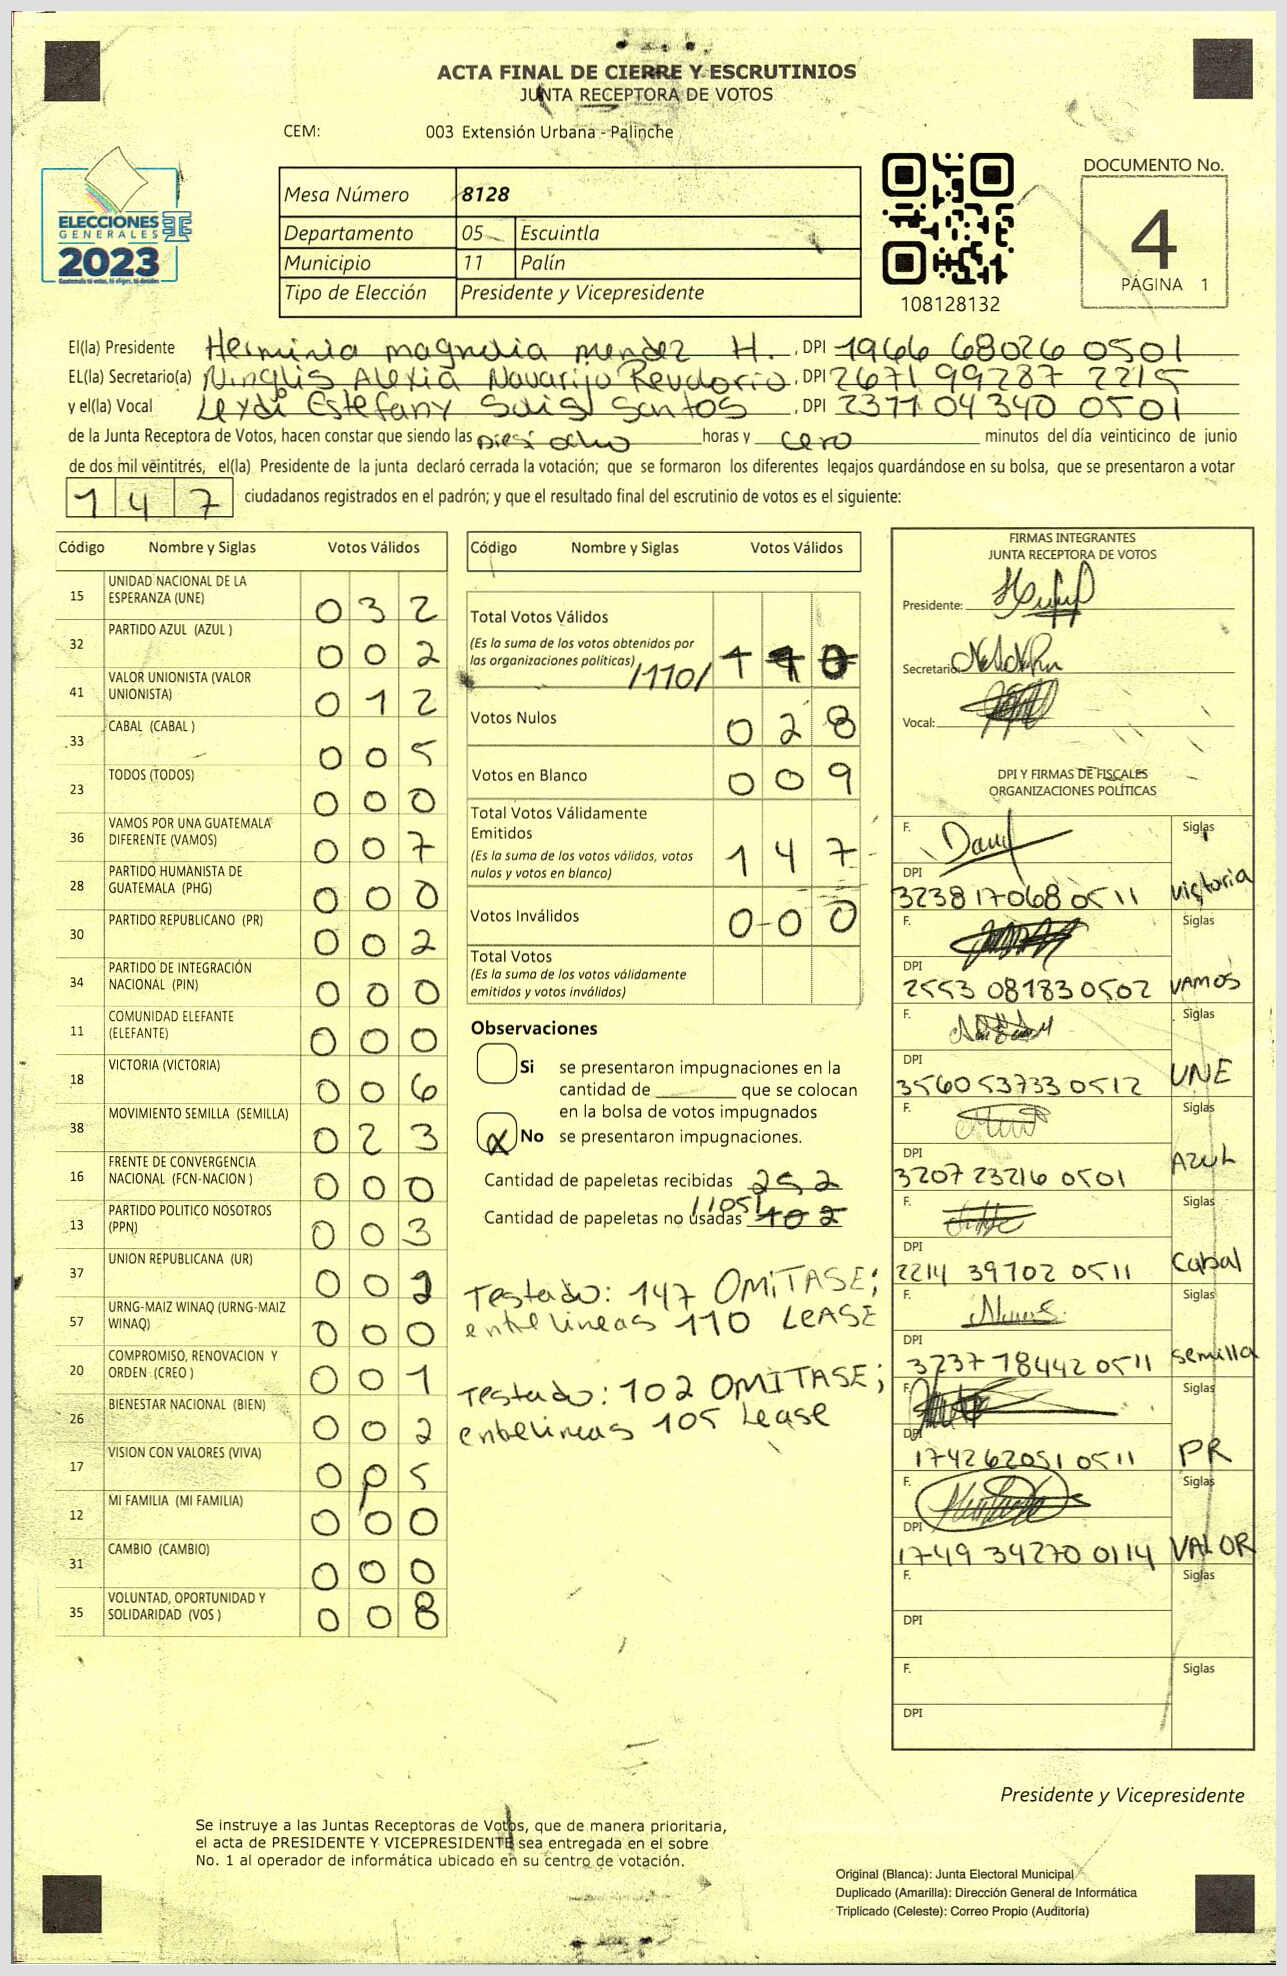 ACTA FINAL DE CIERRE Y ESCRUTINIOS
JUNTA RECEPTORA DE VOTOS
CEM: 003 Extensión Urbana - Palinche
ELECCIONES
GENERALES
2023
Mesa Número 8128
Departamento 05 Escuintla
Municipio 11 Palín
Tipo de Elección Presidente y Vicepresidente
108128132
DOCUMENTO No.
4
PÁGINA 1
El(la) Presidente Herminia magnolia mendez H. , DPI 1966 68026 0501
EL(la) Secretario(a) Ninglis Alexia Navarijo Reudorio , DPI 2671 99287 2215
y el(la) Vocal Leydi Estefany Solis Santos , DPI 2371 04340 0501
de la Junta Receptora de Votos, hacen constar que siendo las Diesi ocho horas y cero minutos del día veinticinco de junio
de dos mil veintitrés, el(la) Presidente de la junta declaró cerrada la votación; que se formaron los diferentes legajos guardándose en su bolsa, que se presentaron a votar
1 4 7 ciudadanos registrados en el padrón; y que el resultado final del escrutinio de votos es el siguiente:
Código Nombre y Siglas Votos Válidos
15 UNIDAD NACIONAL DE LA ESPERANZA (UNE) 0 3 2
32 PARTIDO AZUL (AZUL ) 0 0 2
41 VALOR UNIONISTA (VALOR UNIONISTA) 0 1 2
33 CABAL (CABAL ) 0 0 5
23 TODOS (TODOS) 0 0 0
36 VAMOS POR UNA GUATEMALA DIFERENTE (VAMOS) 0 0 7
28 PARTIDO HUMANISTA DE GUATEMALA (PHG) 0 0 0
30 PARTIDO REPUBLICANO (PR) 0 0 2
34 PARTIDO DE INTEGRACIÓN NACIONAL (PIN) 0 0 0
11 COMUNIDAD ELEFANTE (ELEFANTE) 0 0 0
18 VICTORIA (VICTORIA) 0 0 6
38 MOVIMIENTO SEMILLA (SEMILLA) 0 2 3
16 FRENTE DE CONVERGENCIA NACIONAL (FCN-NACION ) 0 0 0
13 PARTIDO POLITICO NOSOTROS (PPN) 0 0 3
37 UNION REPUBLICANA (UR) 0 0 2
57 URNG-MAIZ WINAQ (URNG-MAIZ WINAQ) 0 0 0
20 COMPROMISO, RENOVACION Y ORDEN (CREO ) 0 0 1
26 BIENESTAR NACIONAL (BIEN) 0 0 2
17 VISION CON VALORES (VIVA) 0 0 5
12 MI FAMILIA (MI FAMILIA) 0 0 0
31 CAMBIO (CAMBIO) 0 0 0
35 VOLUNTAD, OPORTUNIDAD Y SOLIDARIDAD (VOS ) 0 0 8
Código Nombre y Siglas Votos Válidos
Total Votos Válidos
(Es la suma de los votos obtenidos por
las organizaciones políticas) /110/
Votos Nulos 0 2 8
Votos en Blanco 0 0 9
Total Votos Válidamente
Emitidos
(Es la suma de los votos válidos, votos
nulos y votos en blanco) 1 4 7
Votos Inválidos 0-0 0
Total Votos
(Es la suma de los votos válidamente
emitidos y votos inválidos)
Observaciones
Si se presentaron impugnaciones en la
cantidad de ________ que se colocan
en la bolsa de votos impugnados
X No se presentaron impugnaciones.
Cantidad de papeletas recibidas 252
/105/
Cantidad de papeletas no usadas 102
Testado: 147 OMITASE;
entrelineas 110 LEASE
Testado: 102 OMITASE;
entrelineas 105 Lease
FIRMAS INTEGRANTES
JUNTA RECEPTORA DE VOTOS
Presidente:
Secretario
Vocal:
DPI Y FIRMAS DE FISCALES
ORGANIZACIONES POLÍTICAS
F. Siglas
DPI 3238 17068 0511 victoria
F. Siglas
DPI 2553 081830502 VAMOS
F. Siglas
DPI 3560537330512 UNE
F. Siglas
DPI 3207 23216 0501 AZUL
F. Siglas
DPI 2214 39702 0511 Cabal
F. Siglas
DPI 3237 18442 0511 semilla
F. Siglas
DPI 174262051 0511 PR
F. Siglas
DPI 1749 34270 0114 VALOR
F. Siglas
DPI
F. Siglas
DPI
Presidente y Vicepresidente
Se instruye a las Juntas Receptoras de Votos, que de manera prioritaria,
el acta de PRESIDENTE Y VICEPRESIDENTE sea entregada en el sobre
No. 1 al operador de informática ubicado en su centro de votación.
Original (Blanca): Junta Electoral Municipal
Duplicado (Amarilla): Dirección General de Informática
Triplicado (Celeste): Correo Propio (Auditoría)